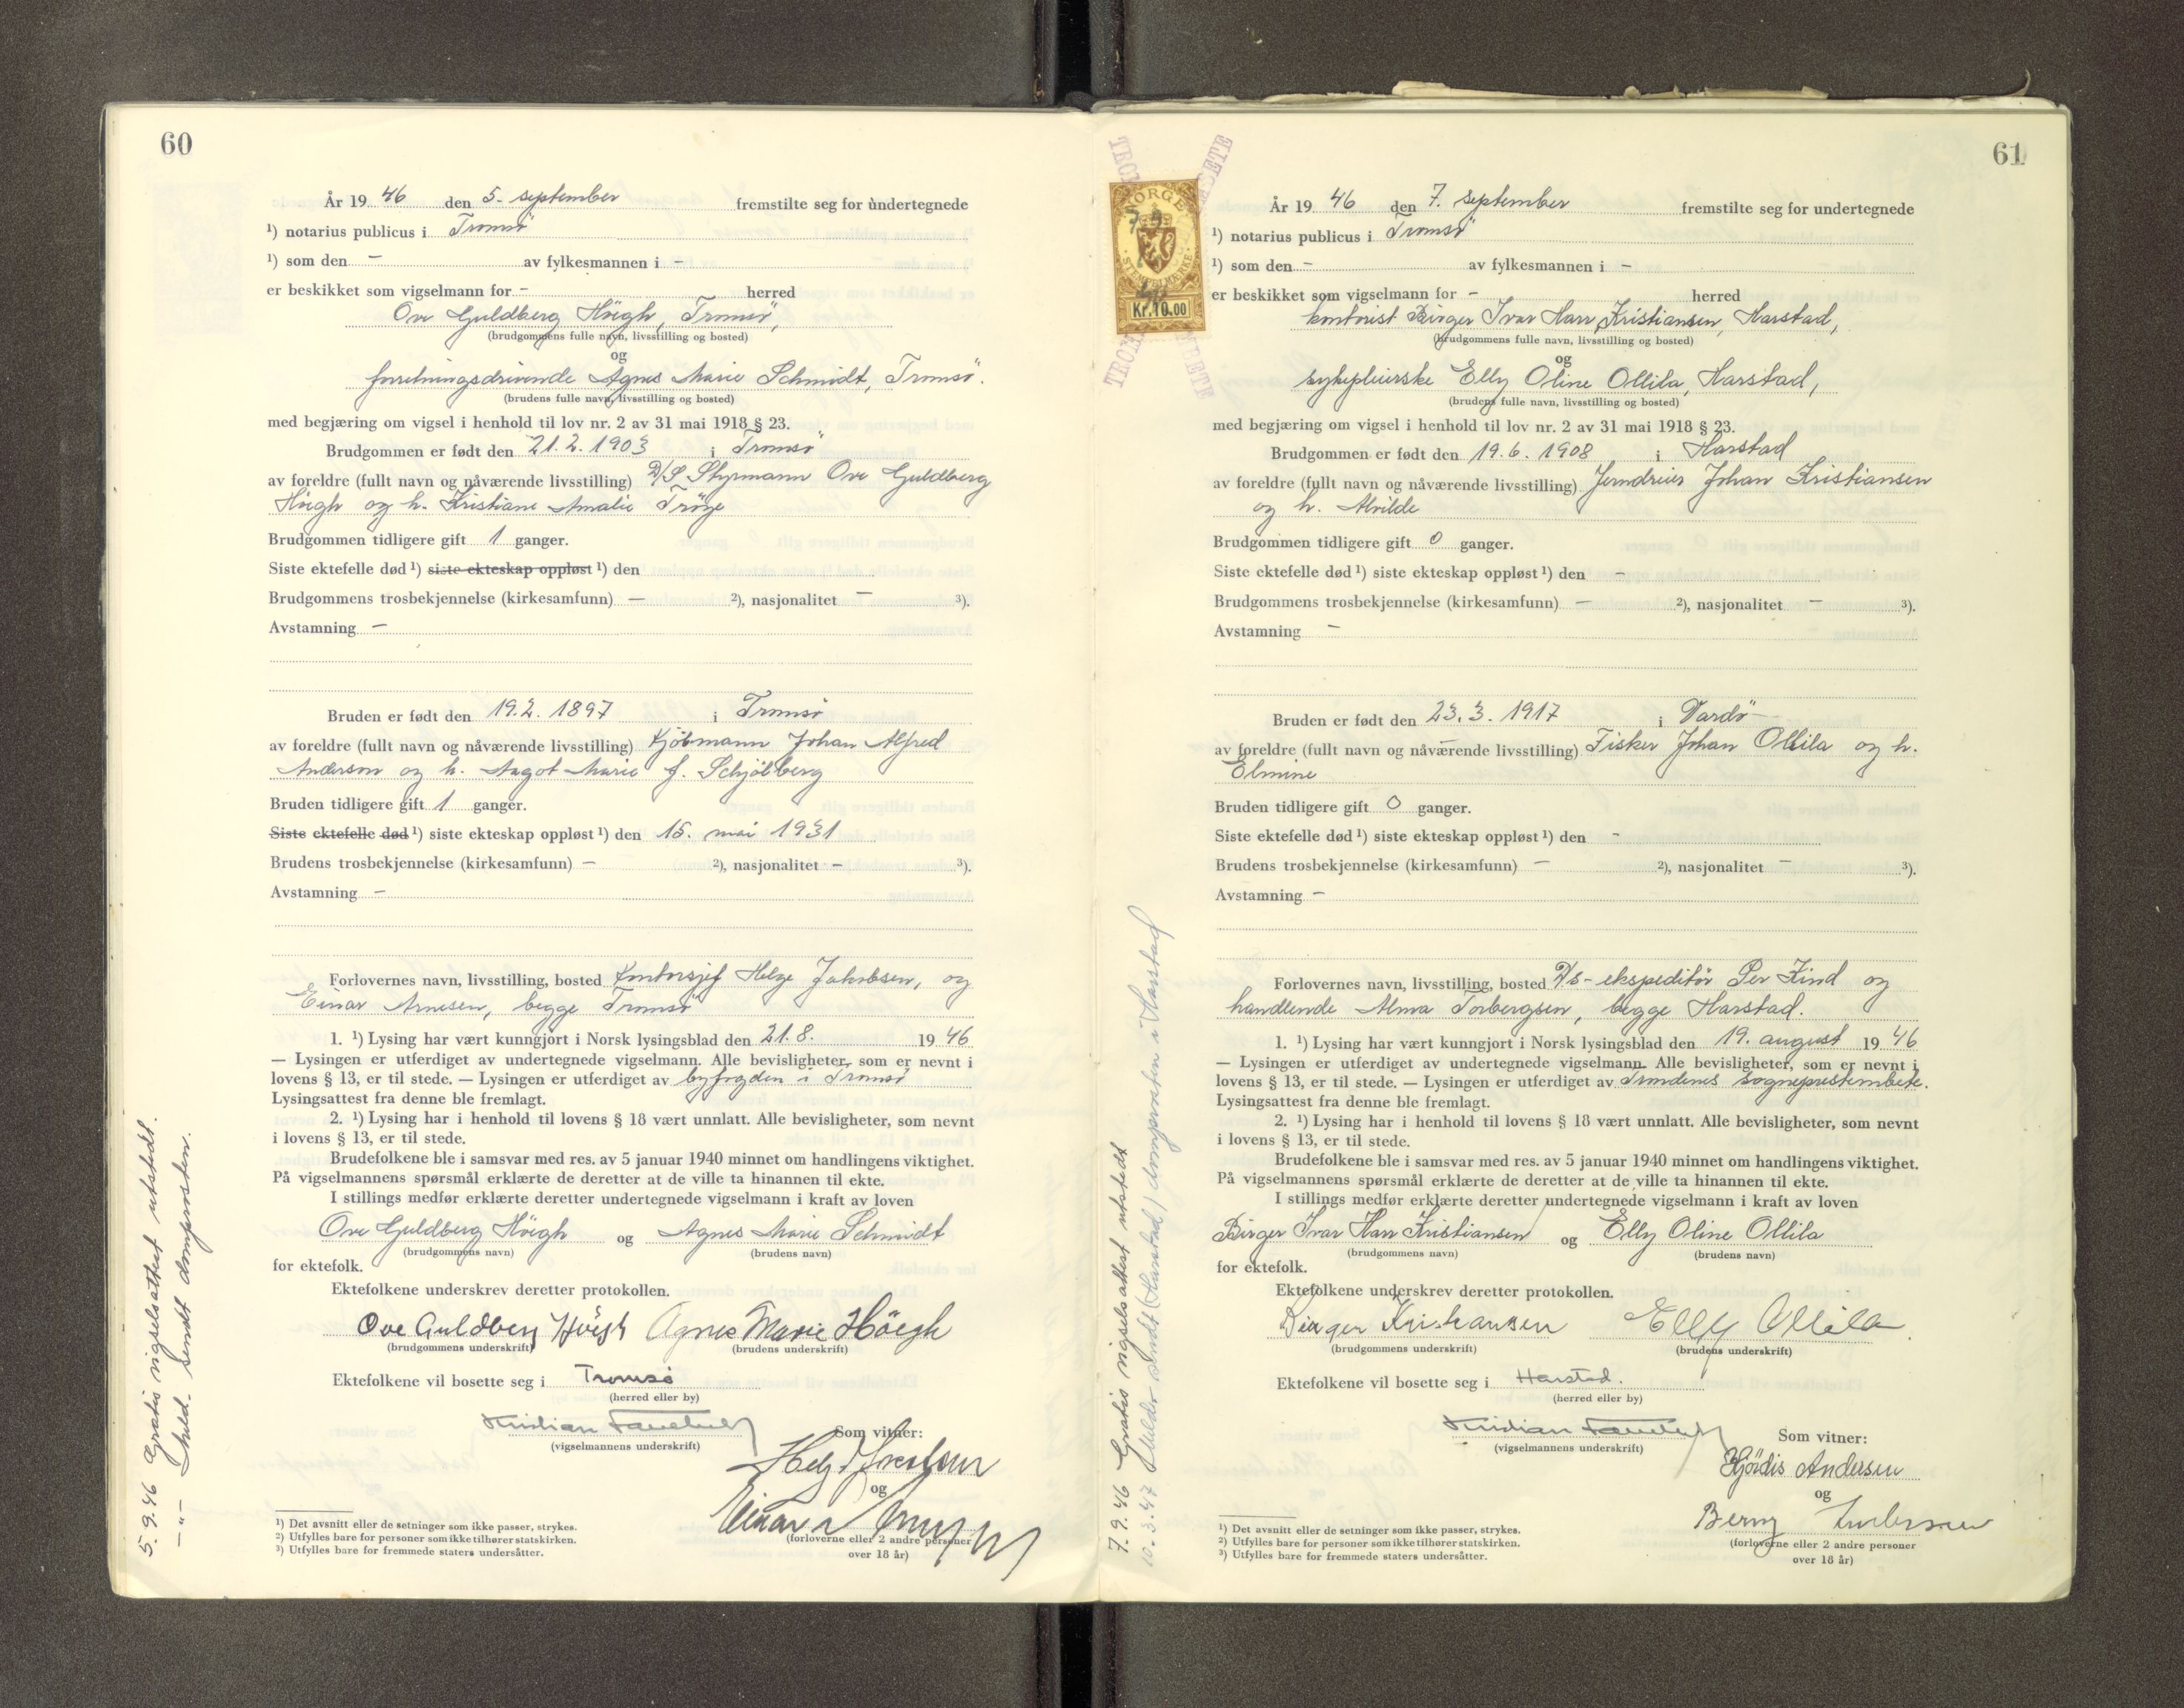 60
År 19 46 den 5. september fremstilte seg for undertegnede
¹) notarius publicus i Tromsö
¹) som den – av fylkesmannen i –
er beskikket som vigselmann for – herred
Ove Guldberg Höegh, Tromsö,
(brudgommens fulle navn, livsstilling og bosted)
og
forretningsdrivende Agnes Marie Schmidt, Tromsö.
(brudens fulle navn, livsstilling og bosted)
med begjæring om vigsel i henhold til lov nr. 2 av 31 mai 1918 § 23.
Brudgommen er født den 21.2.1903 i Tromsö
av foreldre (fullt navn og nåværende livsstilling) D/S Styrmann Ove Guldberg
Höegh og h. Kristiane Amalie
Brudgommen tidligere gift 1 ganger.
Siste ektefelle død ¹) siste ekteskap oppløst ¹) den
Brudgommens trosbekjennelse (kirkesamfunn) – ²), nasjonalitet – ³).
Avstamning –
Bruden er født den 19.2.1897 i Tromsö
av foreldre (fullt navn og nåværende livsstilling) Kjöbmann Johan Alfred
Anderson og h. Aagot Marie f. Schjölberg
Bruden tidligere gift 1 ganger.
Siste ektefelle død ¹) siste ekteskap oppløst ¹) den 15. mai 1931
Brudens trosbekjennelse (kirkesamfunn) – ²), nasjonalitet – ³).
Avstamning –
Forlovernes navn, livsstilling, bosted Kontorsjef Helge Jakobsen, og
Einar Arnesen, begge Tromsö
1. ¹) Lysing har vært kunngjort i Norsk lysingsblad den 21.8. 19 46
— Lysingen er utferdiget av undertegnede vigselmann. Alle bevisligheter, som er nevnt i
lovens § 13, er til stede. — Lysingen er utferdiget av byfogden i Tromsö
Lysingsattest fra denne ble fremlagt.
2. ¹) Lysing har i henhold til lovens § 18 vært unnlatt. Alle bevisligheter, som nevnt
i lovens § 13, er til stede.
Brudefolkene ble i samsvar med res. av 5 januar 1940 minnet om handlingens viktighet.
På vigselmannens spørsmål erklærte de deretter at de ville ta hinannen til ekte.
I stillings medfør erklærte deretter undertegnede vigselmann i kraft av loven
Ove Guldberg Höegh og Agnes Marie Schmidt
(brudgommens navn) (brudens navn)
for ektefolk.
Ektefolkene underskrev deretter protokollen.
Ove Guldberg Höegh Agnes Marie Höegh
(brudgommens underskrift) (brudens underskrift)
Ektefolkene vil bosette seg i Tromsö
(herred eller by)
Kristian
(vigselmannens underskrift)
Som vitner:
Helge Jakobsen
og
Einar Arnesen
(forloverne eller 2 andre personer
over 18 år)
¹) Det avsnitt eller de setninger som ikke passer, strykes.
²) Utfylles bare for personer som ikke tilhører statskirken.
³) Utfylles bare for fremmede staters undersåtter.
5.9.46 Gratis vigselsattest utstedt.
–"– Meld. sendt domprosten.
61
NORGE
STEMPELMERKE
Kr.10.00
År 19 46 den 7. september fremstilte seg for undertegnede
¹) notarius publicus i Tromsö
¹) som den – av fylkesmannen i –
er beskikket som vigselmann for – herred
kontorist Birger Ivar Harr Kristiansen, Harstad,
(brudgommens fulle navn, livsstilling og bosted)
og
sykepleierske Elly Oline Ollila, Harstad,
(brudens fulle navn, livsstilling og bosted)
med begjæring om vigsel i henhold til lov nr. 2 av 31 mai 1918 § 23.
Brudgommen er født den 19.6.1908 i Harstad
av foreldre (fullt navn og nåværende livsstilling) Jerndreier Johan Kristiansen
og h. Alvilde
Brudgommen tidligere gift 0 ganger.
Siste ektefelle død ¹) siste ekteskap oppløst ¹) den –
Brudgommens trosbekjennelse (kirkesamfunn) – ²), nasjonalitet – ³).
Avstamning –
Bruden er født den 23.3.1917 i Vardö
av foreldre (fullt navn og nåværende livsstilling) Fisker Johan Ollila og h.
Elmine
Bruden tidligere gift 0 ganger.
Siste ektefelle død ¹) siste ekteskap oppløst ¹) den –
Brudens trosbekjennelse (kirkesamfunn) – ²), nasjonalitet – ³).
Avstamning –
Forlovernes navn, livsstilling, bosted D/s-ekspeditör Per Kind og
handlende Alma Torbergsen, begge Harstad.
1. ¹) Lysing har vært kunngjort i Norsk lysingsblad den 19. august 19 46
— Lysingen er utferdiget av undertegnede vigselmann. Alle bevisligheter, som er nevnt i
lovens § 13, er til stede. — Lysingen er utferdiget av Trondenes sogneprestembete.
Lysingsattest fra denne ble fremlagt.
2. ¹) Lysing har i henhold til lovens § 18 vært unnlatt. Alle bevisligheter, som nevnt
i lovens § 13, er til stede.
Brudefolkene ble i samsvar med res. av 5 januar 1940 minnet om handlingens viktighet.
På vigselmannens spørsmål erklærte de deretter at de ville ta hinannen til ekte.
I stillings medfør erklærte deretter undertegnede vigselmann i kraft av loven
Birger Ivar Harr Kristiansen og Elly Oline Ollila
(brudgommens navn) (brudens navn)
for ektefolk.
Ektefolkene underskrev deretter protokollen.
Birger Kristiansen Elly Ollila
(brudgommens underskrift) (brudens underskrift)
Ektefolkene vil bosette seg i Harstad.
(herred eller by)
Kristian
(vigselmannens underskrift)
Som vitner:
Hjördis Andersen
og
Berny Andersen
(forloverne eller 2 andre personer
over 18 år)
¹) Det avsnitt eller de setninger som ikke passer, strykes.
²) Utfylles bare for personer som ikke tilhører statskirken.
³) Utfylles bare for fremmede staters undersåtter.
7.9.46 Gratis vigselsattest utstedt
10.3.47 sendt (Harstad) domprosten i Harstad